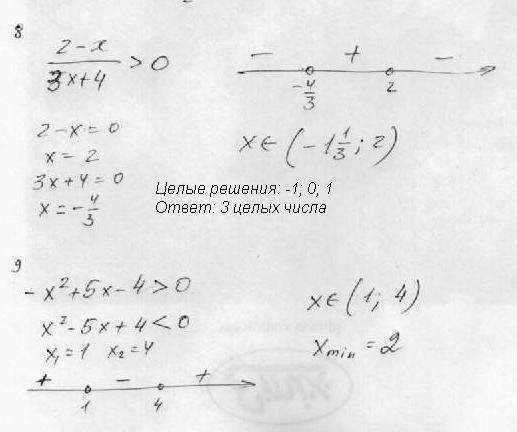 8
(2-x)/(3x+4) > 0
- + -
-4/3 2
2-x=0
x=2
3x+4=0
x=-4/3
x∈(-1 1/3; 2)
Целые решения: -1; 0; 1
Ответ: 3 целых числа
9
-x²+5x-4>0
x²-5x+4<0
x₁=1 x₂=4
+ - +
1 4
x∈(1; 4)
x min = 2